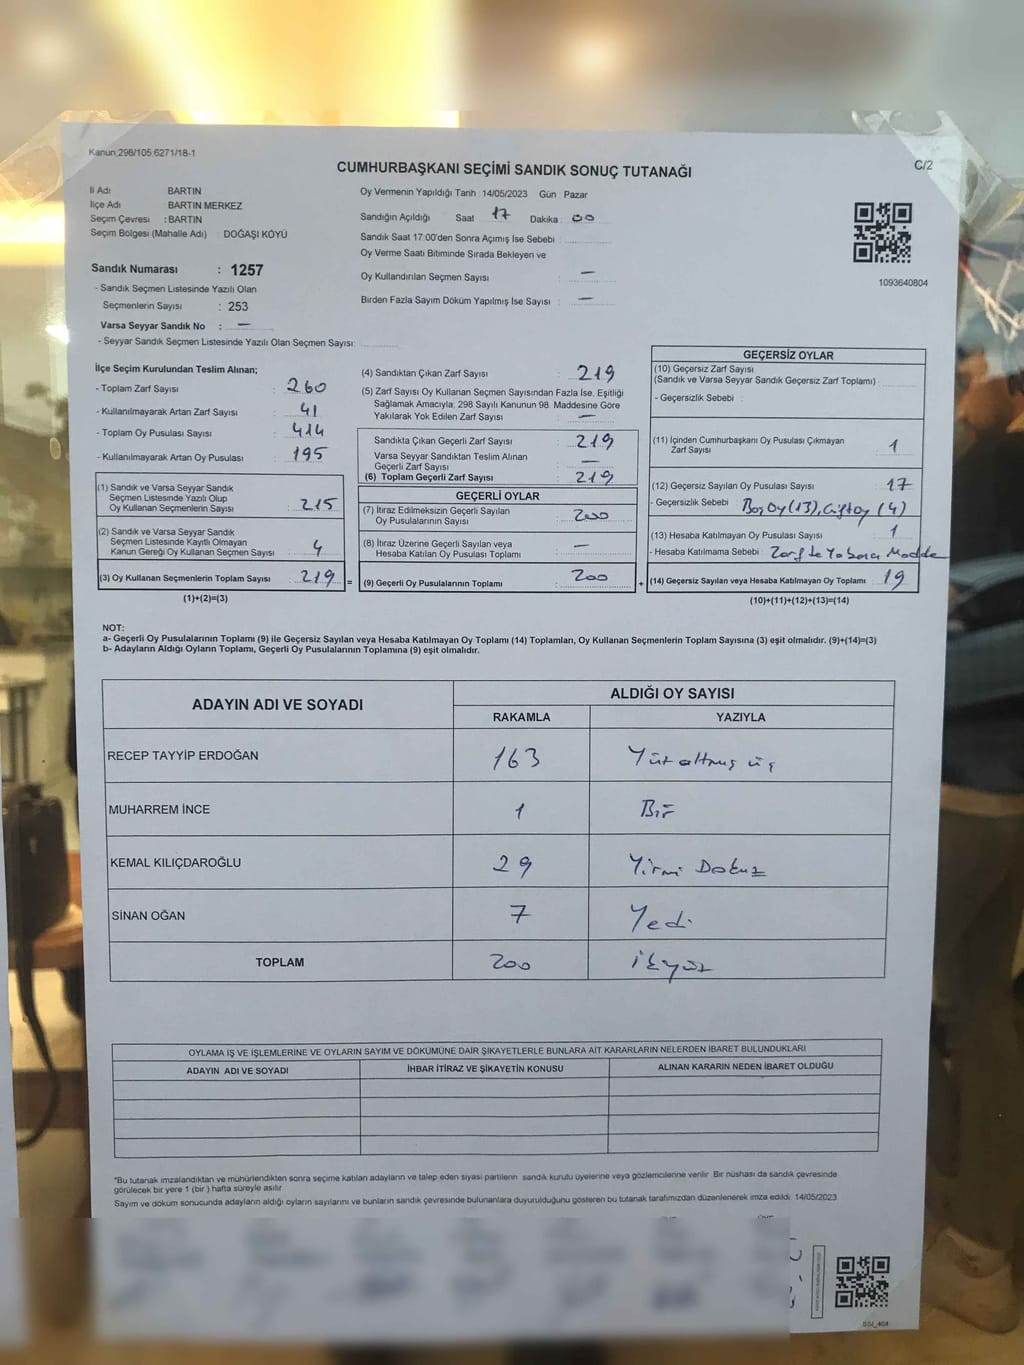 Kanun:298/105,6271/18-1
C/2
CUMHURBAŞKANI SEÇİMİ SANDIK SONUÇ TUTANAĞI
İl Adı BARTIN
İlçe Adı BARTIN MERKEZ
Seçim Çevresi : BARTIN
Seçim Bölgesi (Mahalle Adı) : DOĞAŞI KÖYÜ
Sandık Numarası : 1257
- Sandık Seçmen Listesinde Yazılı Olan
Seçmenlerin Sayısı : 253
Varsa Seyyar Sandık No : —
- Seyyar Sandık Seçmen Listesinde Yazılı Olan Seçmen Sayısı:
Oy Vermenin Yapıldığı Tarih : 14/05/2023 Gün Pazar
Sandığın Açıldığı Saat 17 Dakika : 00
Sandık Saat 17:00'den Sonra Açımış İse Sebebi :
Oy Verme Saati Bitiminde Sırada Bekleyen ve
Oy Kullandırılan Seçmen Sayısı : —
Birden Fazla Sayım Döküm Yapılmış İse Sayısı : —
1093640804
İlçe Seçim Kurulundan Teslim Alınan;
- Toplam Zarf Sayısı : 260
- Kullanılmayarak Artan Zarf Sayısı : 41
- Toplam Oy Pusulası Sayısı : 414
- Kullanılmayarak Artan Oy Pusulası : 195
(1) Sandık ve Varsa Seyyar Sandık
Seçmen Listesinde Yazılı Olup
Oy Kullanan Seçmenlerin Sayısı : 215
(2) Sandık ve Varsa Seyyar Sandık
Seçmen Listesinde Kayıtlı Olmayan
Kanun Gereği Oy Kullanan Seçmen Sayısı : 4
(3) Oy Kullanan Seçmenlerin Toplam Sayısı : 219 =
(1)+(2)=(3)
(4) Sandıktan Çıkan Zarf Sayısı : 219
(5) Zarf Sayısı Oy Kullanan Seçmen Sayısından Fazla İse, Eşitliği
Sağlamak Amacıyla, 298 Sayılı Kanunun 98. Maddesine Göre
Yakılarak Yok Edilen Zarf Sayısı : —
Sandıkta Çıkan Geçerli Zarf Sayısı : 219
Varsa Seyyar Sandıktan Teslim Alınan
Geçerli Zarf Sayısı : —
(6) Toplam Geçerli Zarf Sayısı : 219
GEÇERLİ OYLAR
(7) İtiraz Edilmeksizin Geçerli Sayılan
Oy Pusulalarının Sayısı : 200
(8) İtiraz Üzerine Geçerli Sayılan veya
Hesaba Katılan Oy Pusulası Toplamı : —
(9) Geçerli Oy Pusulalarının Toplamı : 200 +
GEÇERSİZ OYLAR
(10) Geçersiz Zarf Sayısı
(Sandık ve Varsa Seyyar Sandık Geçersiz Zarf Toplamı) :
- Geçersizlik Sebebi :
(11) İçinden Cumhurbaşkanı Oy Pusulası Çıkmayan
Zarf Sayısı : 1
(12) Geçersiz Sayılan Oy Pusulası Sayısı : 17
- Geçersizlik Sebebi : Boş Oy (13), Çift oy (4)
(13) Hesaba Katılmayan Oy Pusulası Sayısı : 1
- Hesaba Katılmama Sebebi : Zarf te Yabancı Madde
(14) Geçersiz Sayılan veya Hesaba Katılmayan Oy Toplamı : 19
(10)+(11)+(12)+(13)=(14)
NOT:
a- Geçerli Oy Pusulalarının Toplamı (9) ile Geçersiz Sayılan veya Hesaba Katılmayan Oy Toplamı (14) Toplamları, Oy Kullanan Seçmenlerin Toplam Sayısına (3) eşit olmalıdır. (9)+(14)=(3)
b- Adayların Aldığı Oyların Toplamı, Geçerli Oy Pusulalarının Toplamına (9) eşit olmalıdır.
ADAYIN ADI VE SOYADI
ALDIĞI OY SAYISI
RAKAMLA YAZIYLA
RECEP TAYYİP ERDOĞAN 163 Yüz altmış üç
MUHARREM İNCE 1 Bir
KEMAL KILIÇDAROĞLU 29 Yirmi Dokuz
SİNAN OĞAN 7 Yedi
TOPLAM 200 İkiyüz
OYLAMA İŞ VE İŞLEMLERİNE VE OYLARIN SAYIM VE DÖKÜMÜNE DAİR ŞİKAYETLERLE BUNLARA AİT KARARLARIN NELERDEN İBARET BULUNDUKLARI
ADAYIN ADI VE SOYADI İHBAR İTİRAZ VE ŞİKAYETİN KONUSU ALINAN KARARIN NEDEN İBARET OLDUĞU
*Bu tutanak imzalandıktan ve mühürlendikten sonra seçime katılan adayların ve talep eden siyasi partilerin sandık kurulu üyelerine veya gözlemcilerine verilir. Bir nüshası da sandık çevresinde
görülecek bir yere 1 (bir) hafta süreyle asılır.
Sayım ve döküm sonucunda adayların aldığı oyların sayılarını ve bunların sandık çevresinde bulunanlara duyurulduğunu gösteren bu tutanak tarafımızdan düzenlenerek imza edildi. 14/05/2023